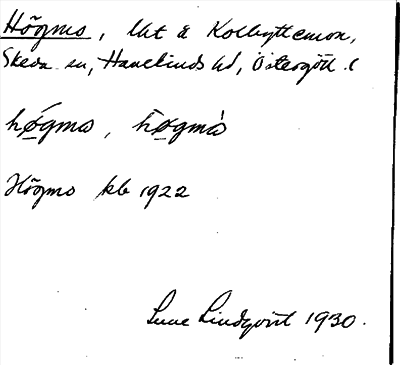 Högmo, lht å Kolbyttemon,
Skeda sn, Hanekinds hd, Östergötl. l
høgmo, høgmò
Högmo kb 1922
Sune Lindqvist 1930.